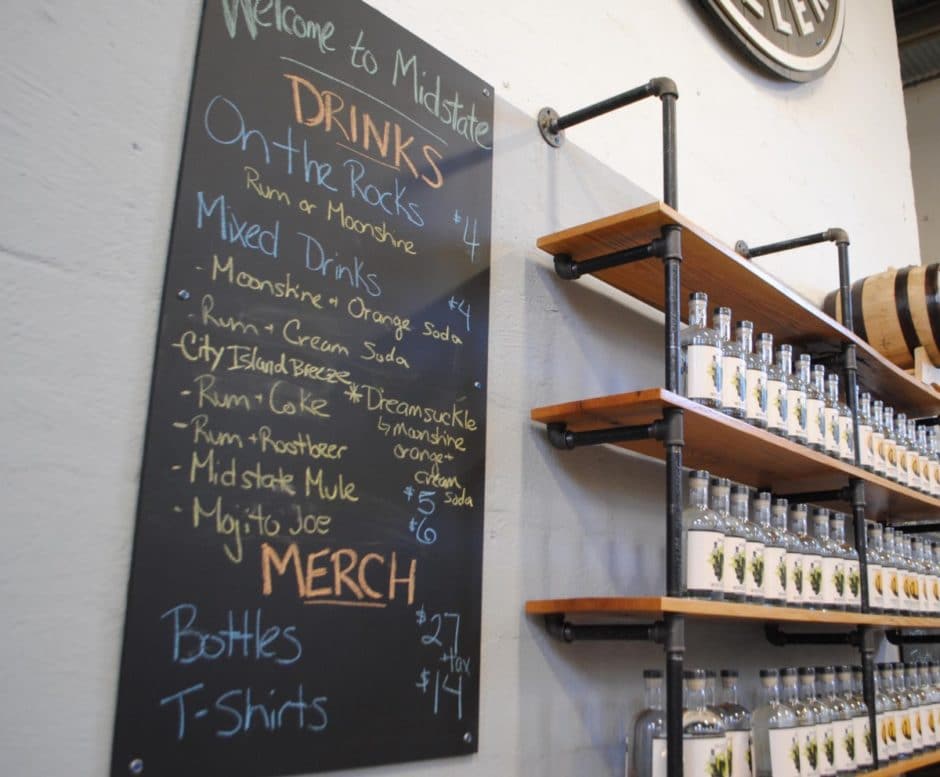 Welcome to Midstate
DRINKS
On the Rocks $4
Rum or Moonshine
Mixed Drinks $4
- Moonshine + Orange Soda
- Rum + Cream Soda
- City Island Breeze
- Rum + Coke
* Dreamsuckle
↳ moonshine
orange +
cream
soda
- Rum + Rootbeer
- Midstate Mule $5
- Mojito Joe $6
MERCH
Bottles $27
+tax
T-Shirts $14